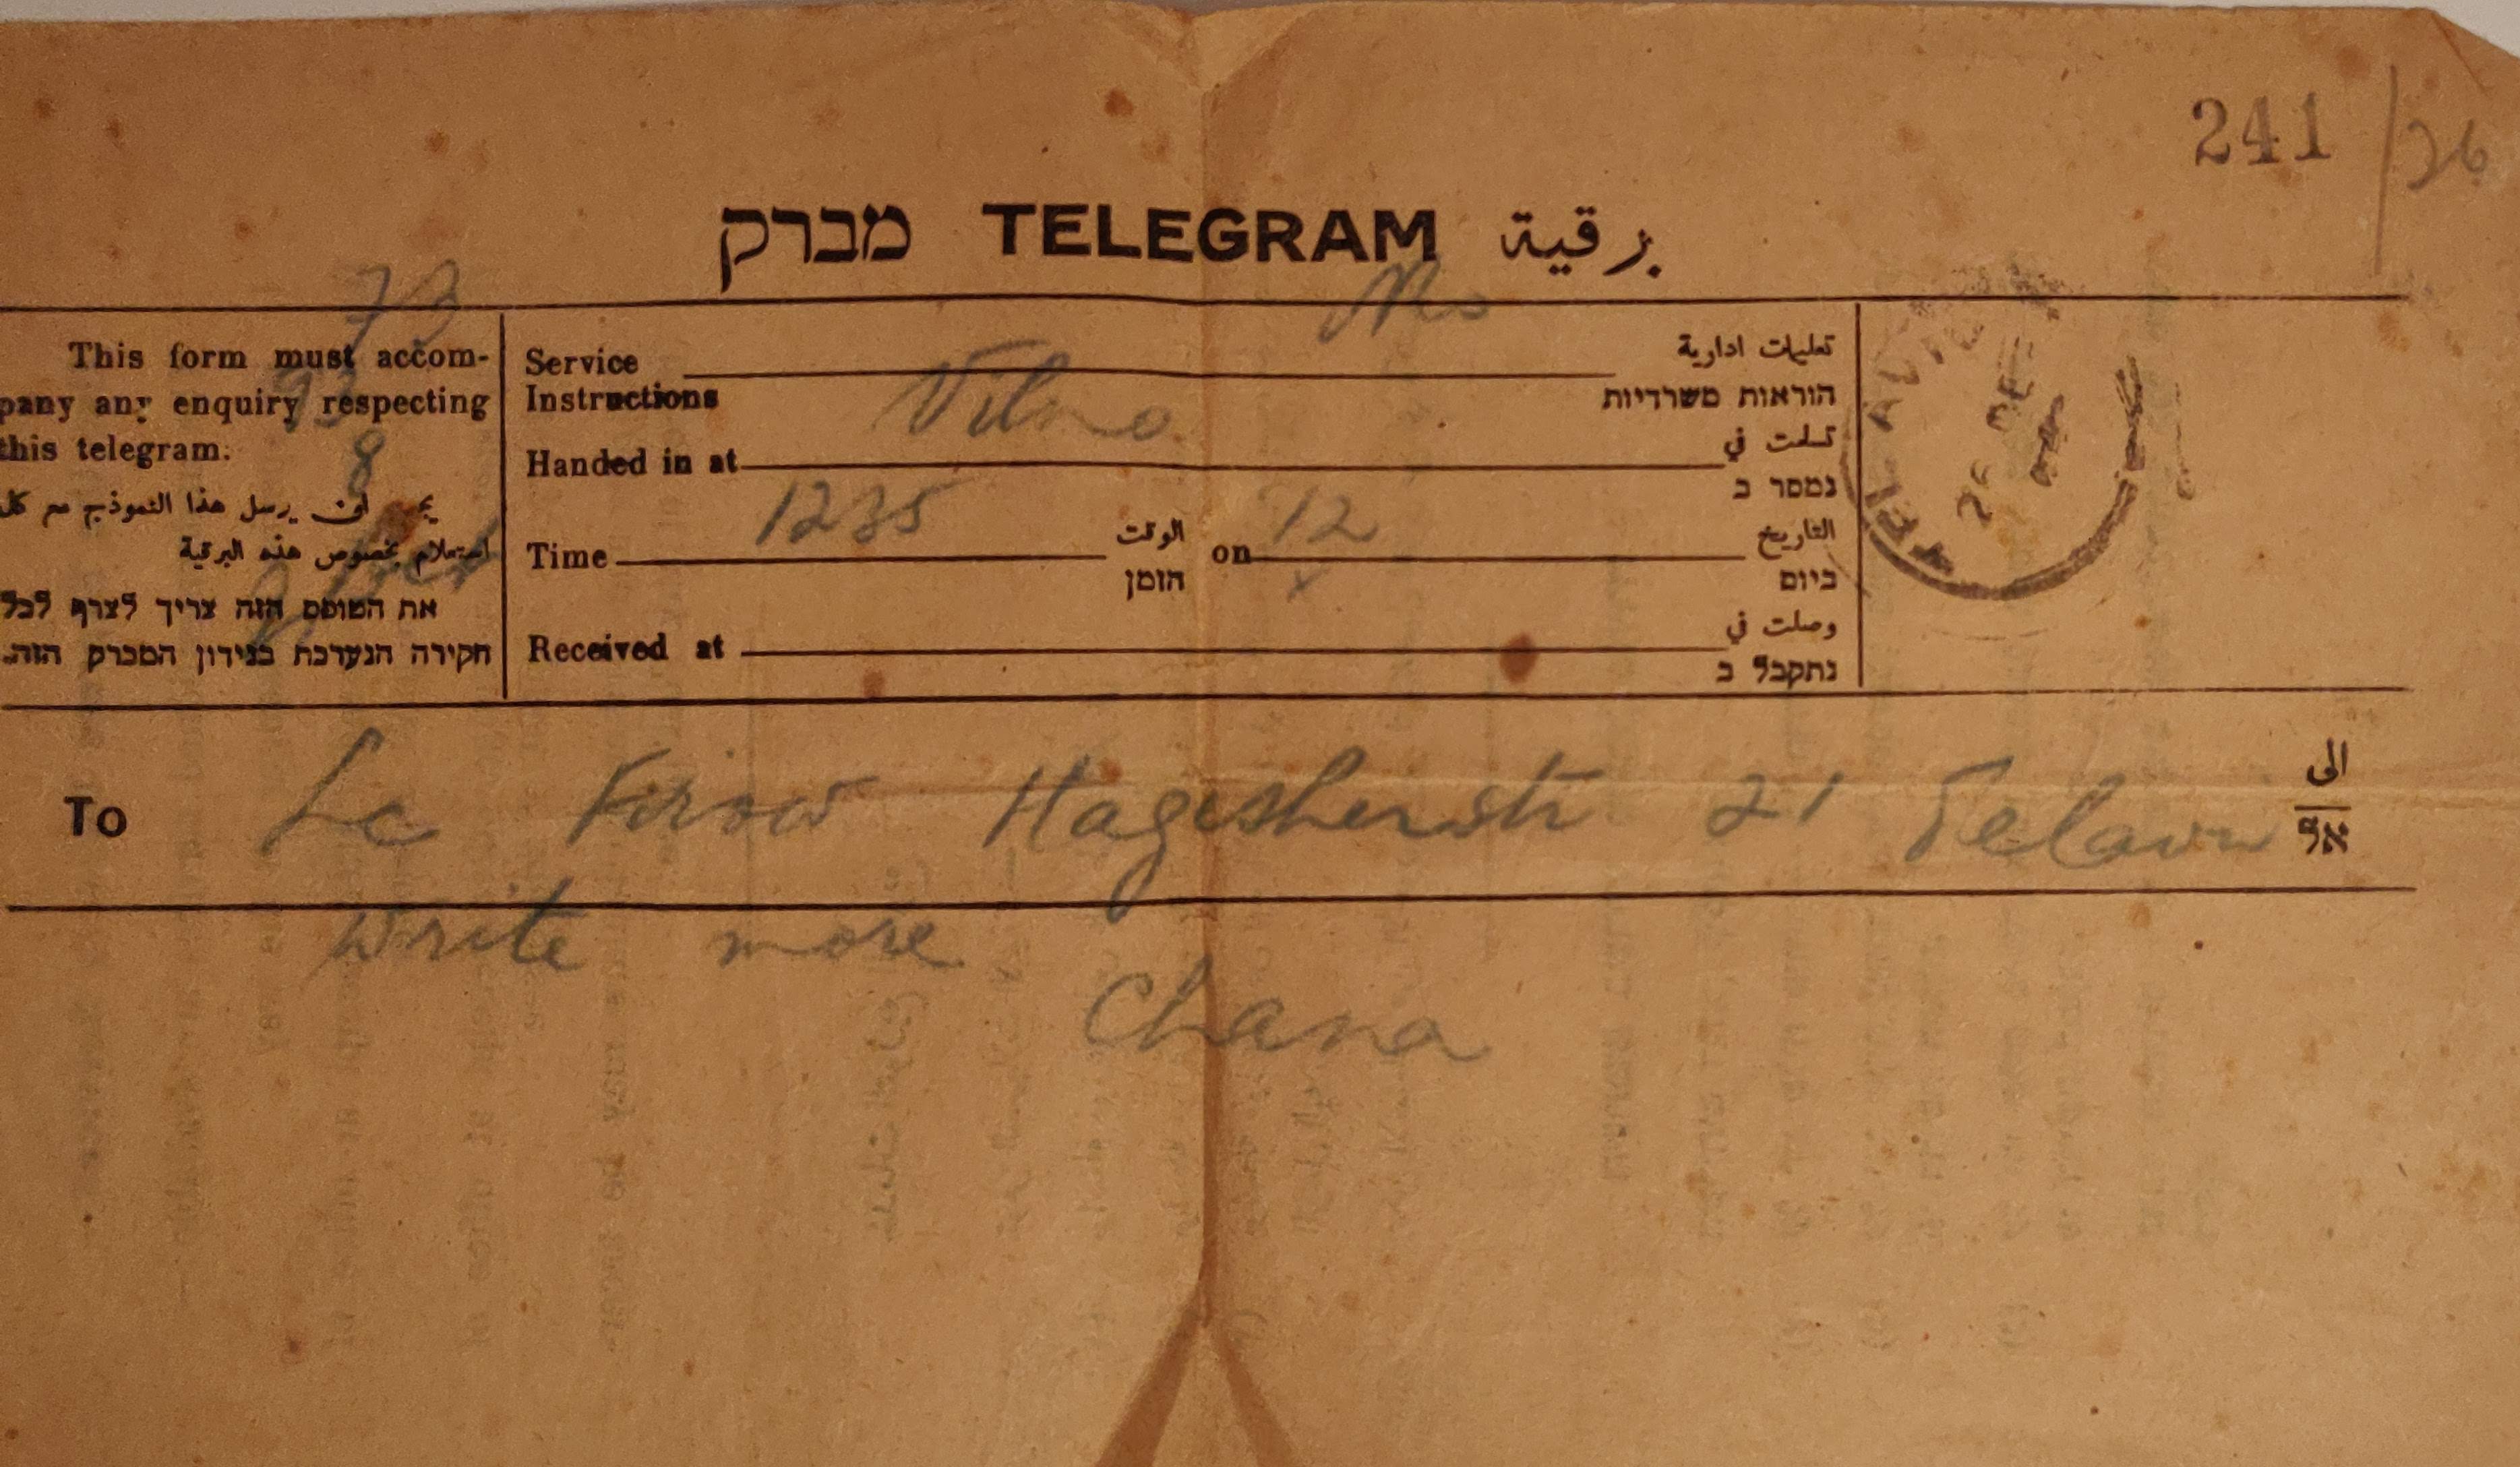 241 / 26
מברק TELEGRAM برقية
73
This form must accom-
pany any enquiry respecting
this telegram.
93
8
يجب ان يرسل هذا النموذج مع كل
استعلام بخصوص هذه البرقية
את הטופס הזה צריך לצרף לכל
חקירה הנערכת בנידון המברק הזה.
Service
Instructions
تعليمات ادارية
הוראות משרדיות
Handed in at Vilno
تسلمت في
נמסר ב
Time 1235 الوقت
הזמן
on 12 التاريخ
ביום
Received at
وصلت في
נתקבל ב
TEL AVIV
26 DE
To Lc Kirow Hagisherstr 21 Telaviv
الى
אל
write more
Chana